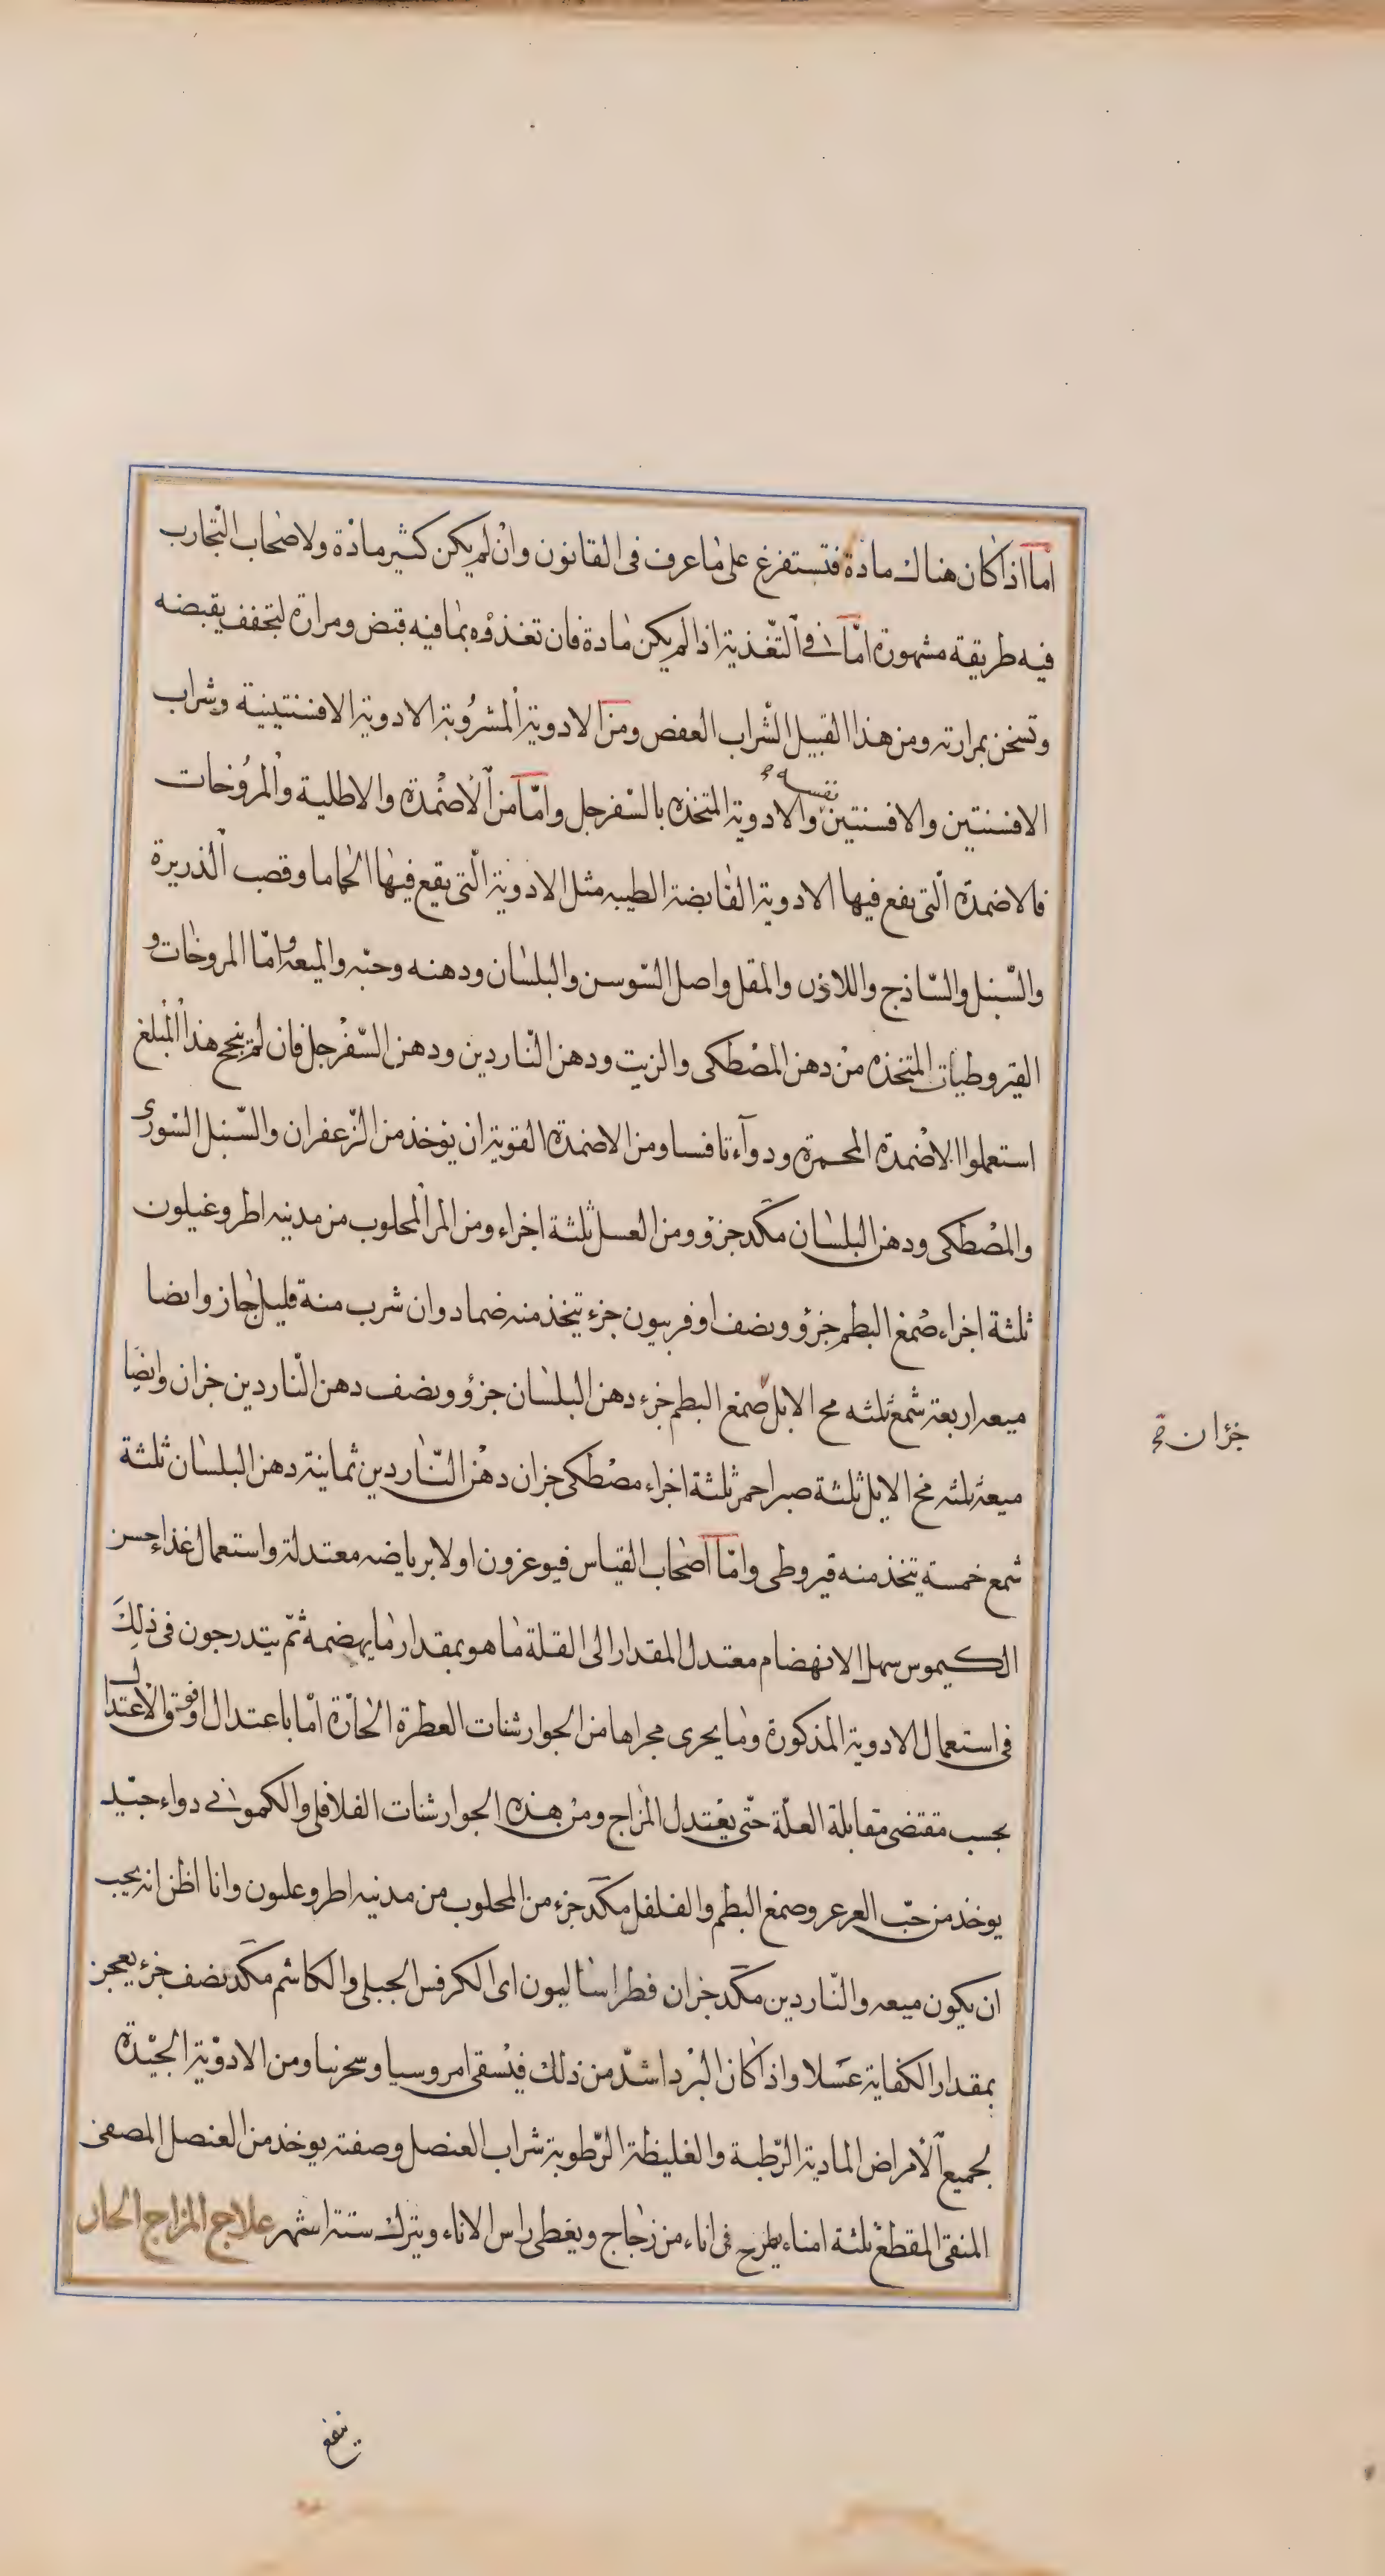 اما اذا كان هناك مادة فتستفرغ على ما عرف فى القانون وان لم يكن كثير مادة ولاصحاب التجارب
فيه طريقة مشهورة امّا فى التّغذية اذا لم يكن مادة فان تغذؤه بما فيه قبض ومرارة لتجفف بقبضه
وتسخن بمرارته ومن هذا القبيل الشّراب العفص ومن الادوية المشرُوبة الادوية الافسنتينية وشراب
الافسنتين والافسنتين نفسه والادوية المتخذه بالسّفرجل وامّا من الأضمدة والاطلية والمرُوخات
فالاضمدة الّتى يقع فيها الادوية القابضة الطيبه مثل الادوية الّتى يقع فيها الحماما وقصب الذريرة
والسّنبل والسّاذج واللاذن والمقل واصل السّوسن والبلسان ودهنه وحبّه والميعه وامّا المروخات و
القيروطيات المتخذه من دهن المصْطكى والزيت ودهن النّاردين ودهن السّفرجل فان لم ينجح هذا المبلغ
استعملوا الاضمدة المحمرة ودوآء ثافسا ومن الاضمدة القوية ان يوخذ من الزّعفران والسّنبل السّورى
والمصْطكى ودهن البلسان مكد جزؤ ومن العسل ثلثة اجزاء ومن المر المحلوب من مدينه اطروغيلون
ثلثة اجزاء صُمغ البطم جزؤ ونصف اوفربيون جزء يتخذ منه ضماد وان شرب منة قليل جاز وايضا
ميعه اربعة شمع ثلثه مح الابل صمغ البطم جزء دهن البلسان جزؤ ونصف دهن النّاردين جزان وايضا
جزؤان صح
ميعة ثلثه مح الايل ثلثة صبر احمر ثلثة اجزاء مصْطكى جزان دهن النّاردين ثمانية دهن البلسان ثلثة
شمع خمسة يتخذ منه قيروطى وامّا اصْحاب القياس فيوعزون اولا برياضه معتدلة واستعمال غذاء حسن
الكيموس سهل الانهضام معتدل المقدار الى القلة ما هو بمقدار ما يهضمه ثمّ يتدرجون فى ذلِكَ
فى استعمال الادوية المذكورة وما يجرى مجراها من الجوارشنات العطرة الحارّة امّا باعتدال او فوق الاعتدال
بحسب مقتضى مقابلة العلّة حتّى يعْتدل المزاج ومن هذه الجوارشنات الفلافلى والكمونى دواء جيّد
يوخذ من حبّ العرعر وصمغ البطم والفلفل مكد جزء من المحلوب من مدينه اطروعلىون وانا اظن انه يجب
ان يكون ميعه والنّاردين مكد جزان فطراساليون اى الكرفس الجبلى والكاشم مكد نصف جزء يعجن
بمقدار الكفاية عسلا واذا كان البرْد اشدّ من ذلك فيسقى امروسيا وسحرنيا ومن الادوْية الجيّدة
لجميع الأمراض المادية الرّطبة والغليظة الرّطوبة شراب العنصل وصفته يوخذ من العنصل المصفى
المنقى المقطع ثلثة امناء يطرح فى اناء من زجاج ويغطى راس الاناء ويترك ستة اشهر علاج المزاج الحار
ينفع